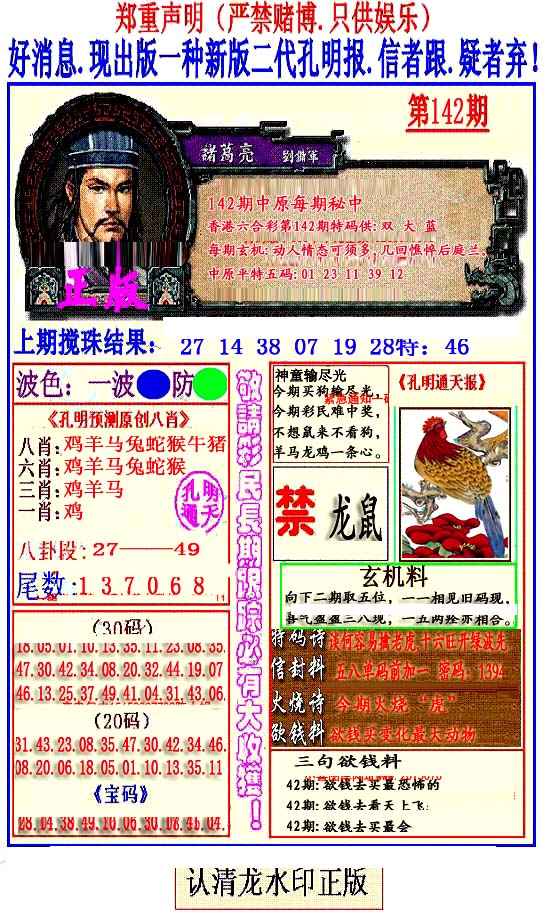 郑重声明（严禁赌博.只供娱乐）
好消息.现出版一种新版二代孔明报.信者跟.疑者弃!
第142期
諸葛亮 劉備軍
142期中原每期秘中
香港六合彩第142期特码供: 双 大 蓝
每期玄机: 动人情态可须多, 几回憔悴后庭兰。
中原平特五码: 01 23 11 39 12
正版
上期搅珠结果: 27 14 38 07 19 28特: 46
波色: 一波 防
《孔明预测原创八肖》
八肖: 鸡羊马兔蛇猴牛猪
六肖: 鸡羊马兔蛇猴
三肖: 鸡羊马
一肖: 鸡
孔明通天
八卦段: 27——49
尾数: 1 3 7 0 6 8
(30码)
18.05.01.10.13.35.11.23.08.35.
47.30.42.34.08.20.32.44.19.07
46.13.25.37.49.41.04.31.43.06.
(20码)
31.43.23.08.35.47.30.42.34.46.
08.20.06.18.05.01.10.13.35.11
《宝码》
敬請彩民長期跟踪必有大收獲！
神童输尽光
今期买狗输尽光,
今期彩民难中奖,
不想鼠来不看狗,
羊马龙鸡一条心。
《孔明通天报》
禁 龙鼠
玄机料
向下二期取五位，一一相见旧码现,
喜气盈盈三八现，一五两怪亦相合。
特码诗 淡何容易擒老虎,十六旺开绿波先
信封料 五八单码前加一 密码: 1394
火烧诗 今期火烧“虎”
欲钱料 欲钱买变化最大动物
三句欲钱料
42期: 欲钱去买最恐怖的
42期: 欲钱去看天上飞:
42期: 欲钱去买最会
认清龙水印正版